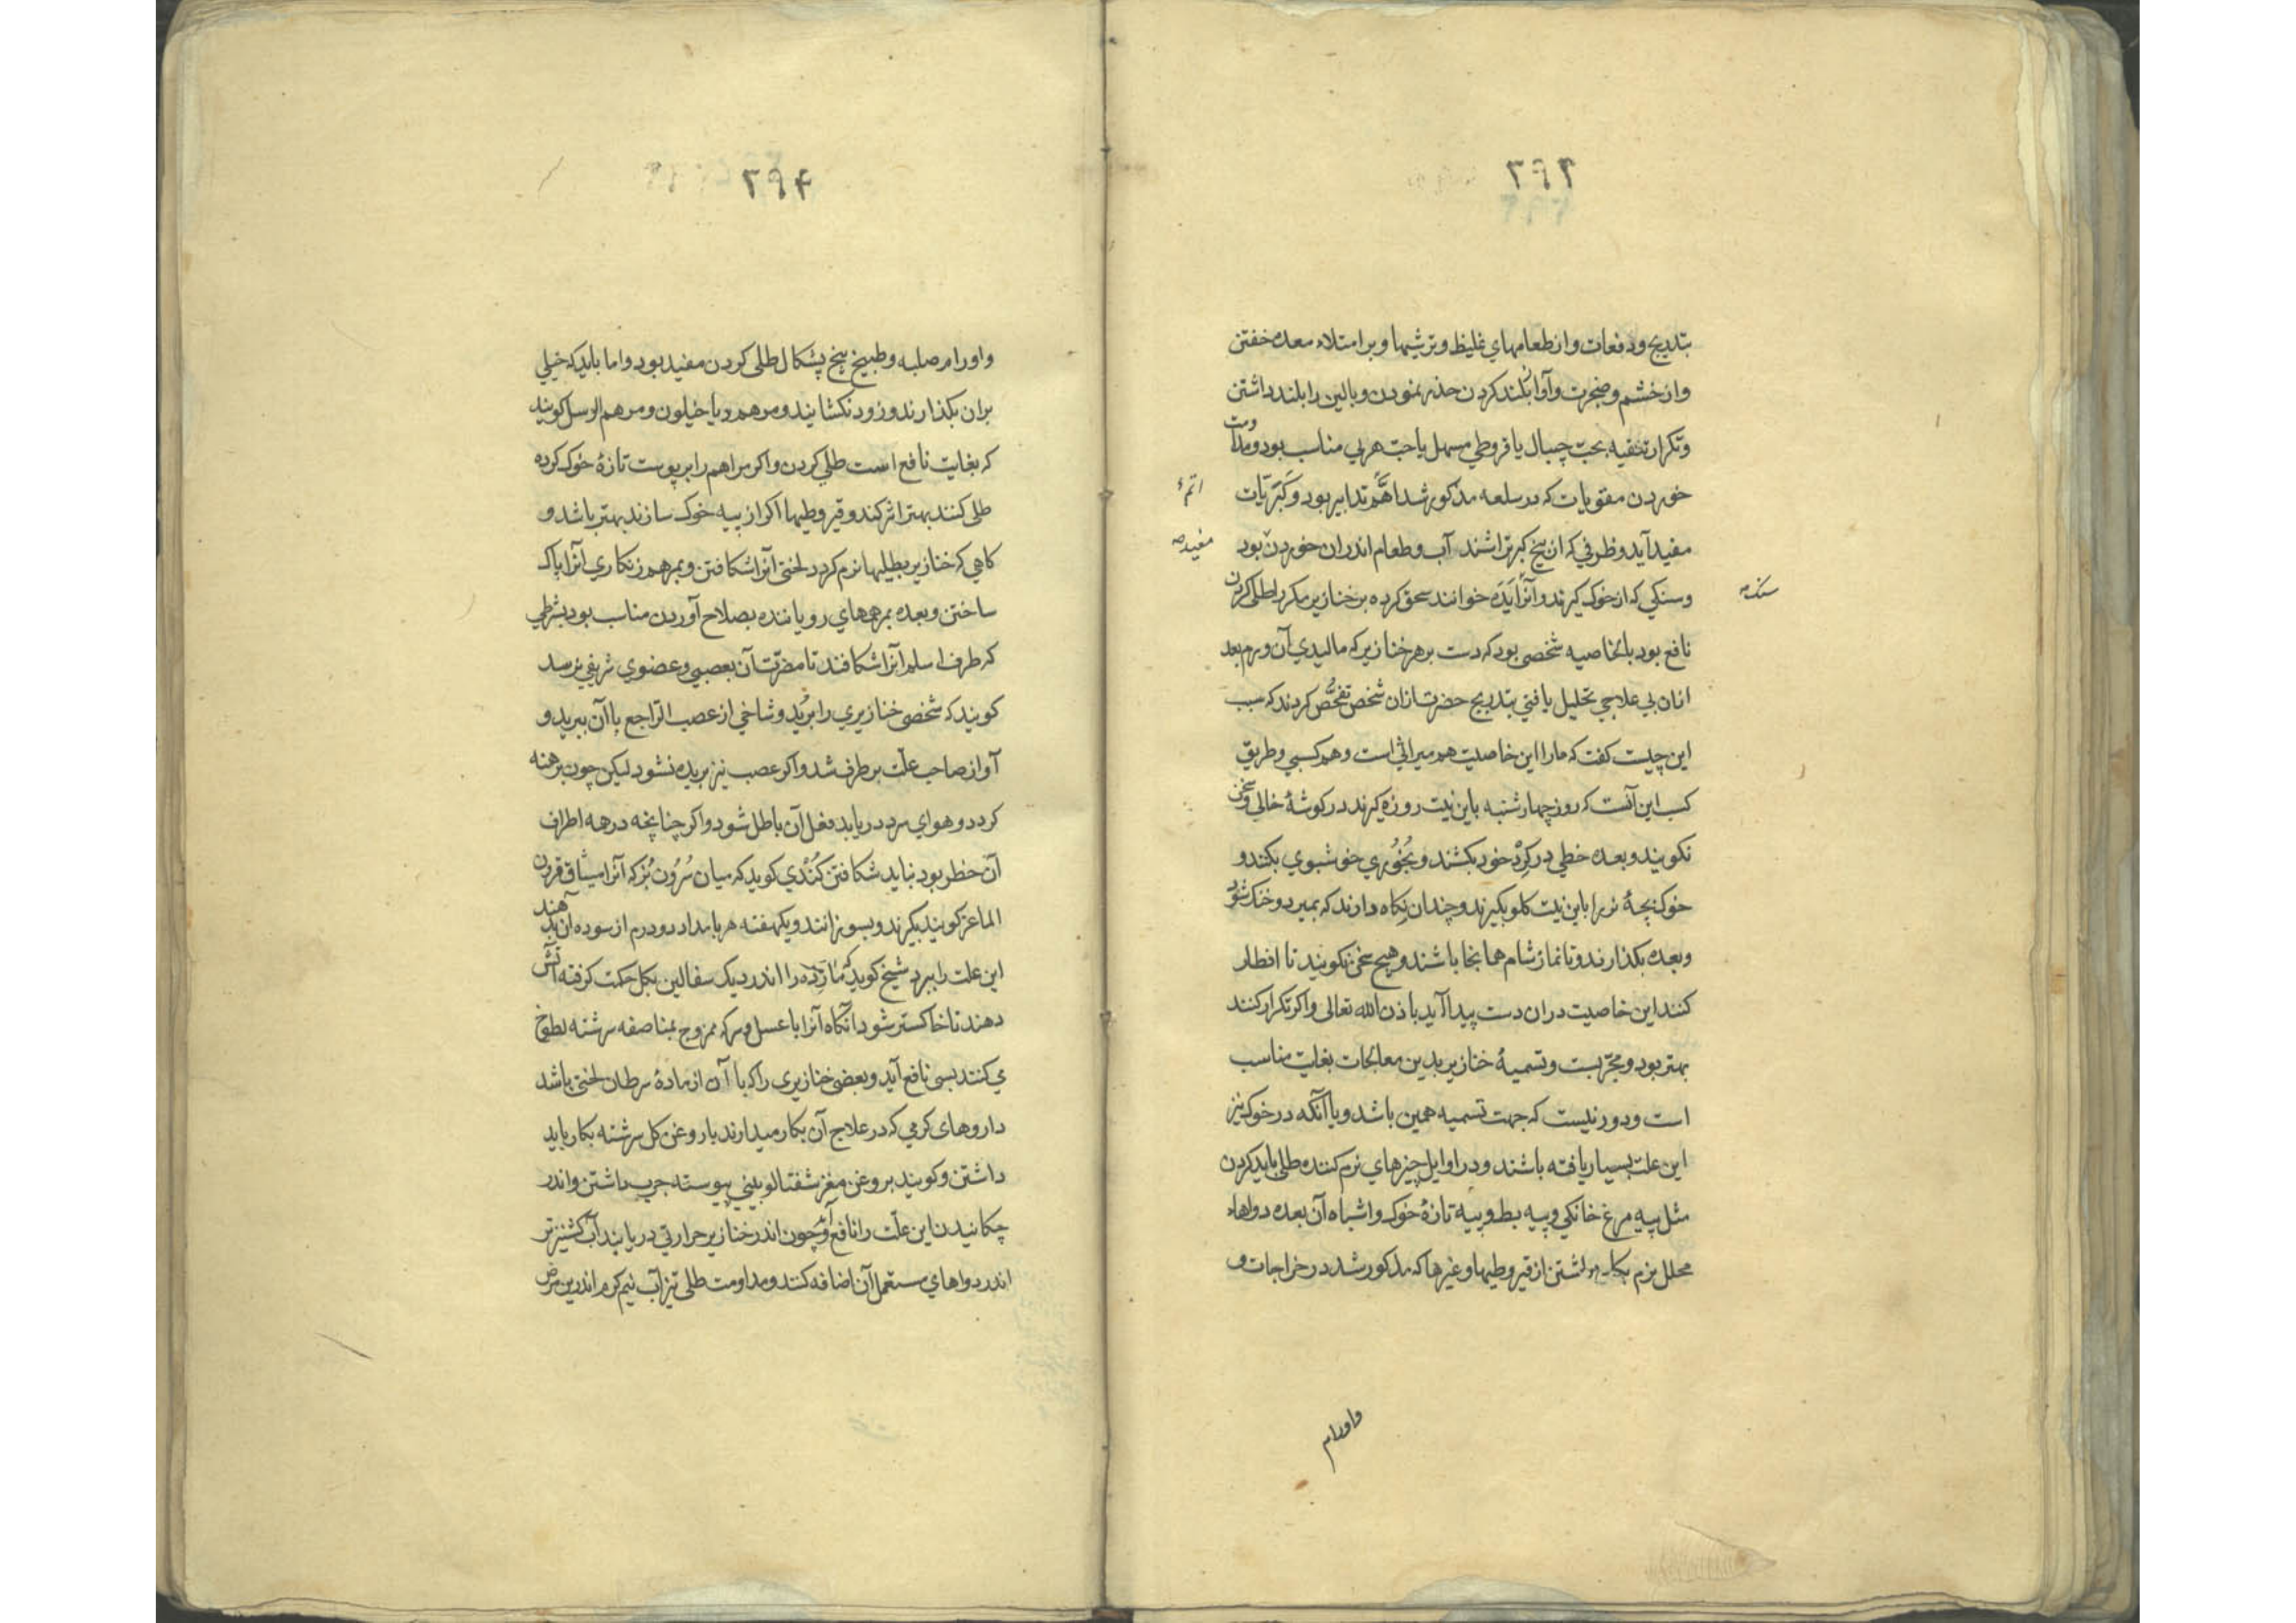 ۲۹۳
بتدریج و دفعات و از طعامهاي غلیظ و ترشیها و بر امتلاء معده خفتن
و از خشم و ضجرت و آواز بلند کردن حذر نمودن و بالین را بلند داشتن
و تکرار تنقیه بحب چیبال یا قروطي مسهل یا حب هربي مناسب بود و مداومت
خوردن مقویات که در سلعه مذکور شد اهمّ تدابیر بود و کبریّات
اتم
مفید آید و ظرفي که از بیخ کبر تراشند آب و طعام اندران خوردن بود
مفید صه
و سنکي که از خوک کیرند و آنرا یَدَه خوانند سحق کرده بر خنازیر مکرر طلی کردن
سنکـ صه
نافع بود بالخاصیه شخصی بود که دست بر هر خنازیر که مالیدي آن ورم بعد
ازان بي علاجي تحلیل یافتي بتدریج حضرت ازان شخص تفحّص کردند که سبب
این چیست کفت که ما را این خاصیت هم میراثي است و هم کسبي و طریق
کسب این آنست که روز چهارشنبه باین نیت روزه کیرند در کوشۀ خالي و سخن
نکویند و بعده خطي در کِرْد خود بکشند و بُخُوري خوشبوي بکنند و
خوک بچۀ نر را باین نیت کلو بکیرند و چندان نکاه دارند که بمیرد و خنک شود
و بعده بکذارند و تا نماز شام همانجا باشند و هیچ سخن نکویند تا افطار
کنند این خاصیت دران دست پیدا آید باذن الله تعالی و اکر تکرار کنند
بهتر بود و مجرّبست و تسمیۀ خنازیر بدین معالجات بغایت مناسب
است و دور نیست که جهت تسمیه همین باشد و یا آنکه در خوک نیز
این علت بسیار یافته باشند و در اوایل چیزهاي نرم کننده طلی باید کردن
مثل پیه مرغ خانکي و پیه بط و پیه تازۀ خوک و اشباه آن بعده دواهاء
محلل بزم بکار داشتن از قیروطیها و غیرها که مذکور شد در خراجات و
واورام
۲۹۴
و اورام صلبه و طبیخ بیخ پشکال طلی کردن مفید بود و اما باید که خیلي
بران بکذارند و زود نکشایند و مرهم دیاخیلون و مرهم الرسل کویند
که بغایت نافع است طلی کردن و اکر مراهم را بر پوست تازۀ خوک کرده
طلی کنند بهتر اثر کند و قیروطیها اکر از پیه خوک سازند بهتر باشد و
کاهي که خنازیر بطلیها نرم کردد لختي آنرا شکافتن و بمرهم زنکاري آنرا پاک
ساختن و بعده بمرهمهاي رویاننده بصلاح آوردن مناسب بود بشرطي
که طرف اسلم آنرا شکافند تا مضرّت آن بعصبي و عضوي شریفي نرسد
کویند که شخصی خنازیري را برُید و شاخي از عصب الراجع با آن ببرید و
آواز صاحب علّت برطرف شد و اکر عصب نیز بریده نشود لیکن چون برهنه
کردد و هواي سرد دریابد فعل آن باطل شود و اکر چنانچه در همه اطراف
آن خطر بود نباید شکافتن کُنْدي کوید که میان سُرُون بُز که آنرا میثاق قرون
الماعز کویند بکیرند و بسوزانند و یکهفته هر بامداد دو درم از سوده آن بدهند
این علت را ببرد شیخ کوید که مار زنده را اندر دیک سفالین بکل حکمت کرفته آتش
دهند تا خاکستر شود آنکاه آنرا با عسل و سرکه ممزوج بمناصفه سرشته لطوخ
ي کنند بسی نافع آید و بعضی خنازیری را که با آن از مادۀ سرطان لختی باشد
داروهای کرمي که در علاج آن بکار میدارند با روغن کل سرشته بکار باید
داشتن و کویند بروغن مغز شفتالو بیني پیوسته چرب داشتن و اندر
چکانیدن این علّت را نافع آید و چون اندر خنازیر حرارتي دریابند آب کشنیز تر
اندر دواهاي مستعمل آن اضافه کنند و مداومت طلی تیزآب نیم کرم اندرین مرض